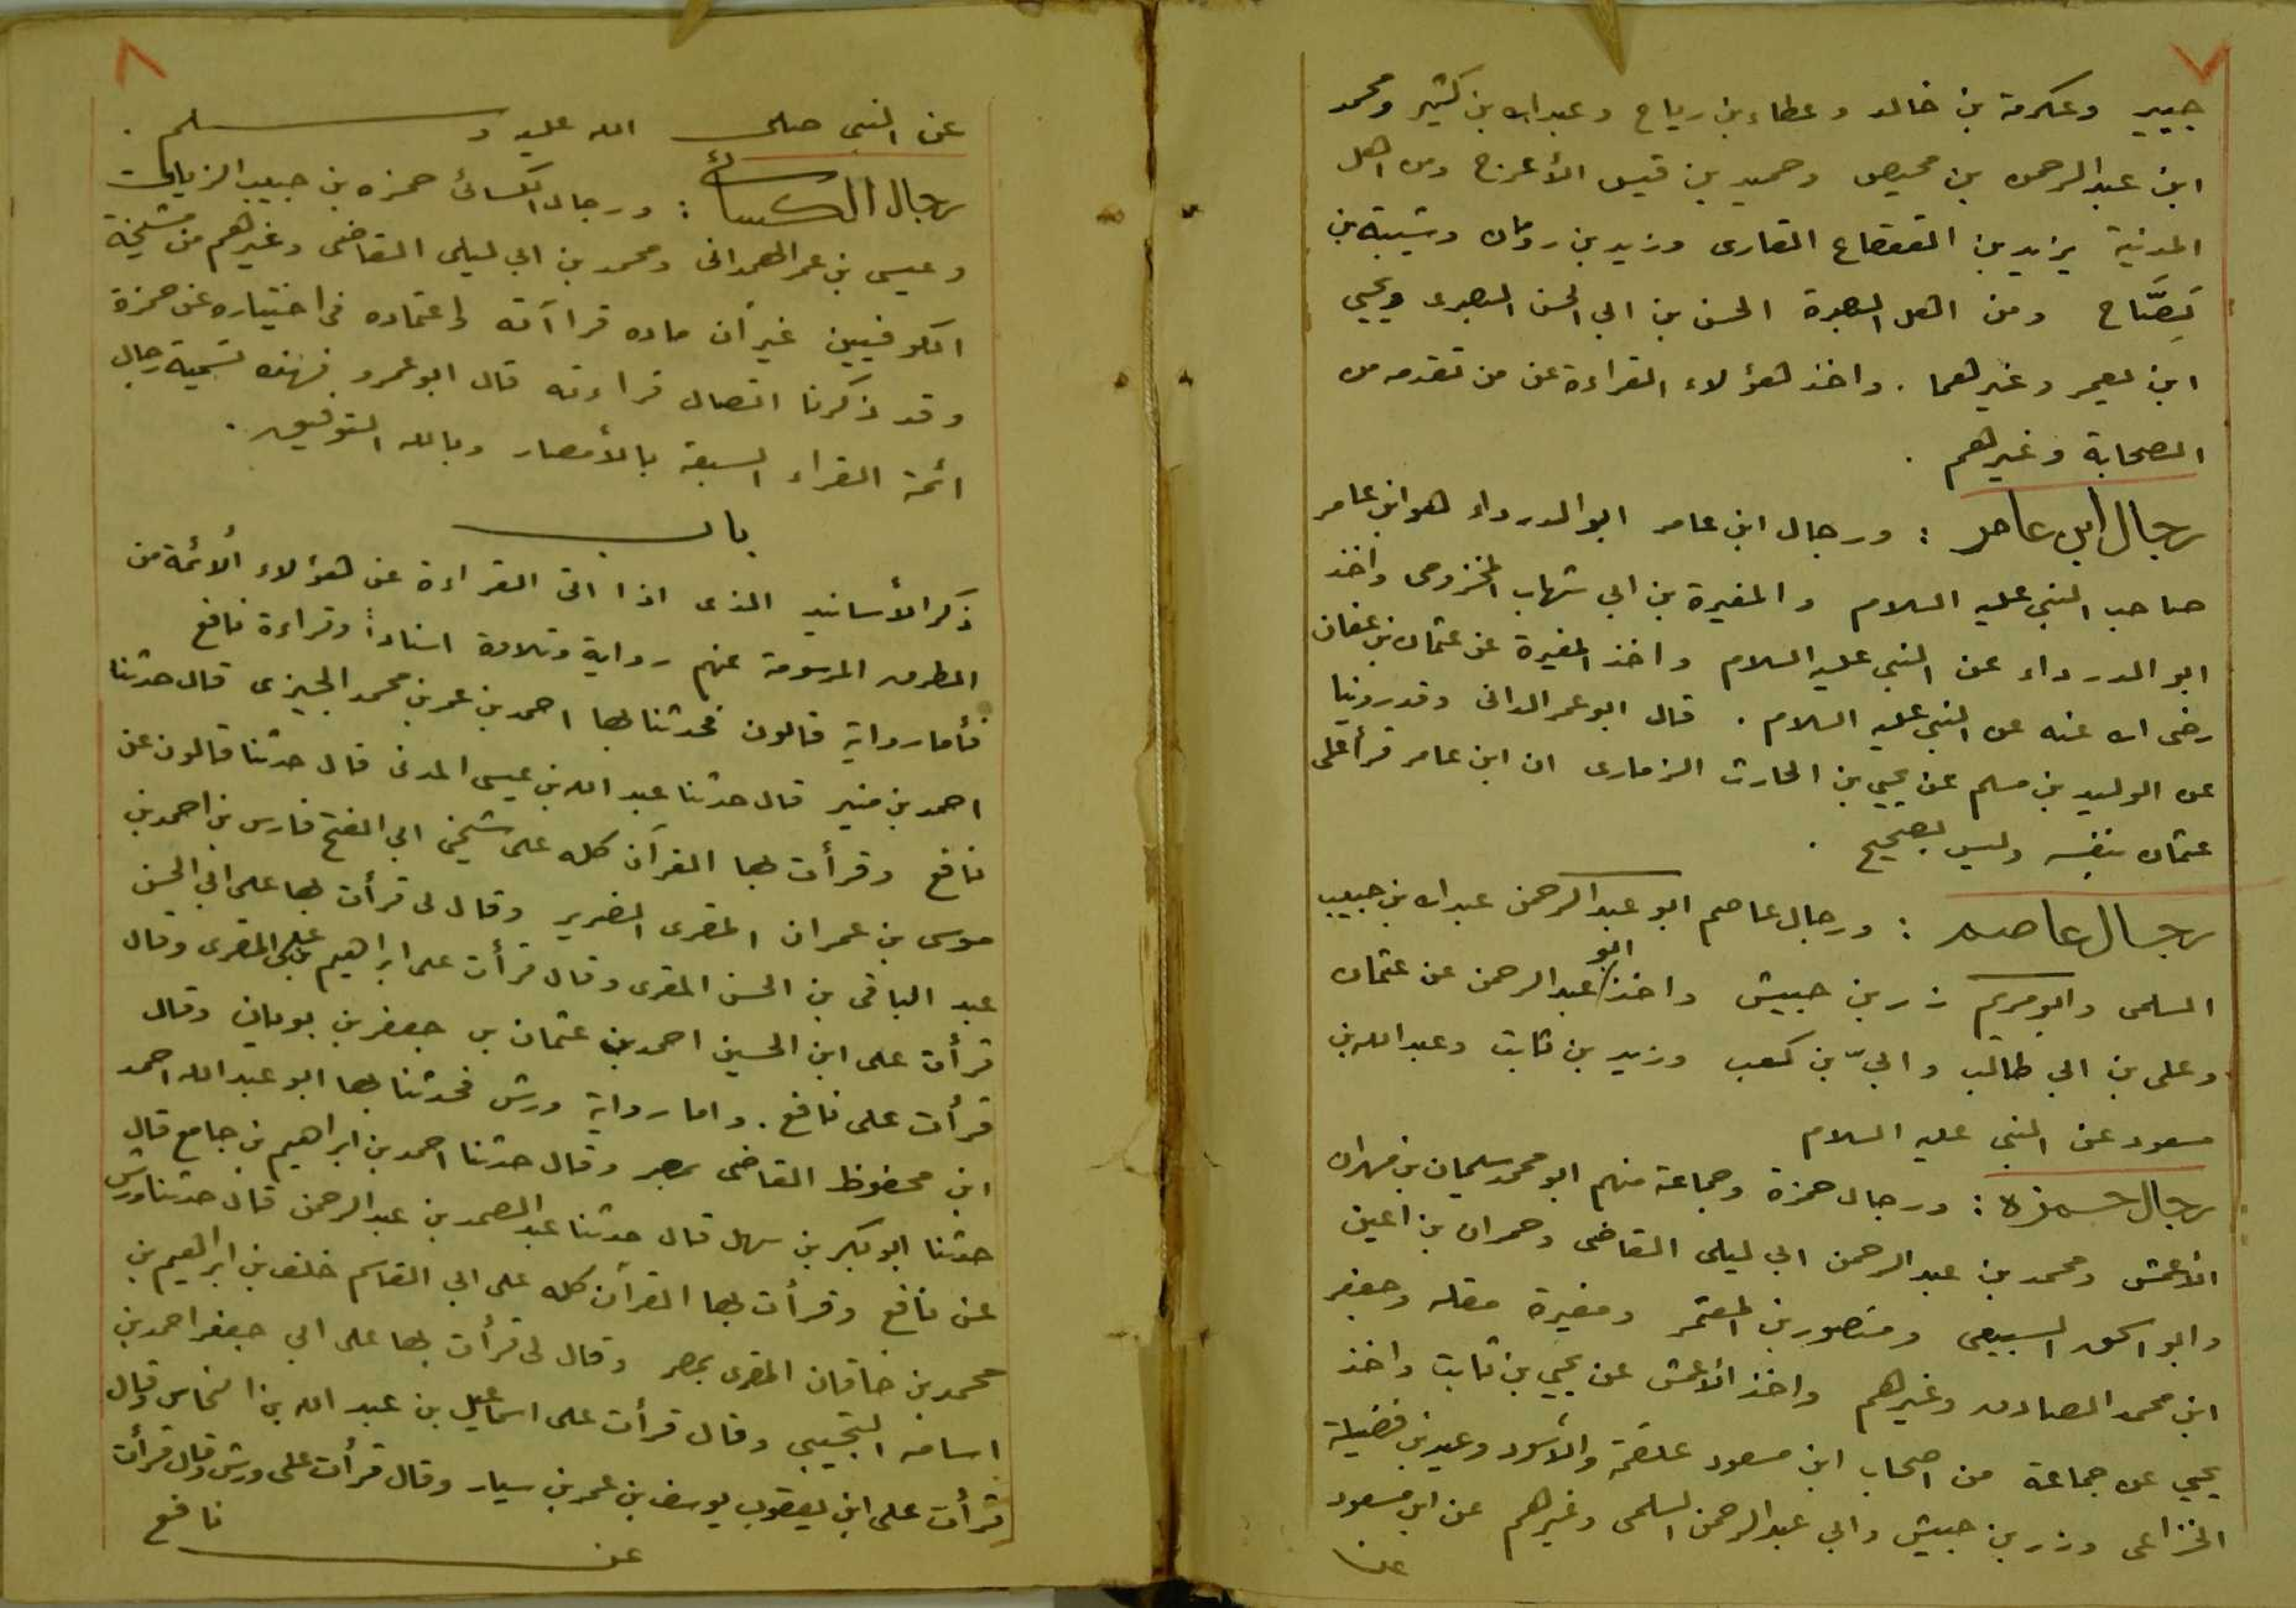 ٧
جبير وعكرمة بن خالد وعطاء بن رباح وعبد الله بن كثير ومحمد
ابن عبد الرحمن بن محيصن وحميد بن قيس الأعرج ومن اهل
المدينة يزيد بن القعقاع القارى وزيد بن رومان وشيبة بن
نصَّاح ومن اهل البصرة الحسن بن ابي الحسن البصرى ويحيي
ابن يعمر وغيرهما . واخذ هؤلاء القراءة عن من تقدم من
الصحابة وغيرهم .
رجال ابن عامر : ورجال ابن عامر ابو الدرداء هو ابن عامر
صاحب النبي عليه السلام والمغيرة بن ابي شهاب المخزومى واخذ
ابو الدرداء عن النبي عليه السلام واخذ المغيرة عن عثمان بن عفان
رضى الله عنه عن النبي عليه السلام . قال ابو عمر الدانى وقد روينا
عن الوليد بن مسلم عن يحيي بن الحارث الزمارى ان ابن عامر قرأ على
عثمان بنفسه وليس بصحيح .
رجال عاصم : ورجال عاصم ابو عبد الرحمن عبد الله بن حبيب
السلمى وابو مريم زر بن حبيش واخذ ابو عبد الرحمن عن عثمان
وعلى بن ابي طالب وابيّ بن كعب وزيد بن ثابت وعبد الله بن
مسعود عن النبي عليه السلام
رجال حمزه : ورجال حمزة وجماعة منهم ابو محمد سليمان بن مهران
الأعمش ومحمد بن عبد الرحمن ابي ليلى القاضى وحمران بن اعين
وابو اسحق السبيعى ومنصور بن المعتمر ومغيرة مقله وجعفر
ابن محمد الصادق وغيرهم واخذ الأعمش عن يحيي بن ثابت واخذ
يحيي عن جماعة من اصحاب ابن مسعود علقمة والأسود وعبيد بن فضيلة
الخزاعى وزر بن حبيش وابي عبد الرحمن السلمى وغيرهم عن ابن مسعود
عن
٨
عن النبي صلى الله عليه وسلم .
رجال الكسائ : ورجال الكسائ حمزه بن حبيب الزيات
وعيسى بن عمر الهمدانى ومحمد بن ابي ليلى القاضى وغيرهم من مشيخة
الكوفيين غير أن ماده قراآته واعتماده فى اختياره عن حمزة
وقد ذكرنا اتصال قراءته قال ابو عمرو فهذه تسمية رجال
ائمة القراء السبعة بالأمصار وبالله التوفيق .
باب
ذكر الأسانيد الذى اذا اتى القراءة عن هؤلاء ألائمة من
الطرق المرسومة عنهم رواية وتلاوة اسناداً وقراءة نافع
فأما رواية قالون فحدثنا بها احمد بن عمر بن محمد الجيزى قال حدثنا
احمد بن منير قال حدثنا عبد الله بن عيسى المدنى قال حدثنا قالون عن
نافع وقرأت بها القرآن كله على شيخى ابي الفتح فارس بن احمد بن
موسى بن عمران المقرى الضرير وقال لى قرأت بها على ابي الحسن
عبد الباقى بن الحسن المقرى وقال قرأت على ابراهيم بن على المقرى وقال
قرأت على ابن الحسين احمد بن عثمان بن جعفر بن بويان وقال
قرأت على نافع . واما رواية ورش فحدثنا بها ابو عبد الله احمد
ابن محفوظ القاضى بمصر وقال حدثنا احمد بن ابراهيم بن جامع قال
حدثنا ابو بكر بن سهل قال حدثنا عبد الصمد بن عبد الرحمن قال حدثنا ورش
عن نافع وقرأت بها القرآن كله على ابي القاسم خلف بن ابراهيم بن
محمد بن خاقان المقرى بمصر وقال لى قرأت بها على ابي جعفر احمد بن
اسامه التجيبي وقال قرأت على اسماعيل بن عبد الله بن النحاس وقال
قرأت على ابن يعقوب يوسف بن عمر بن سيار وقال قرأت على ورش وقال قرأت
عن نافع